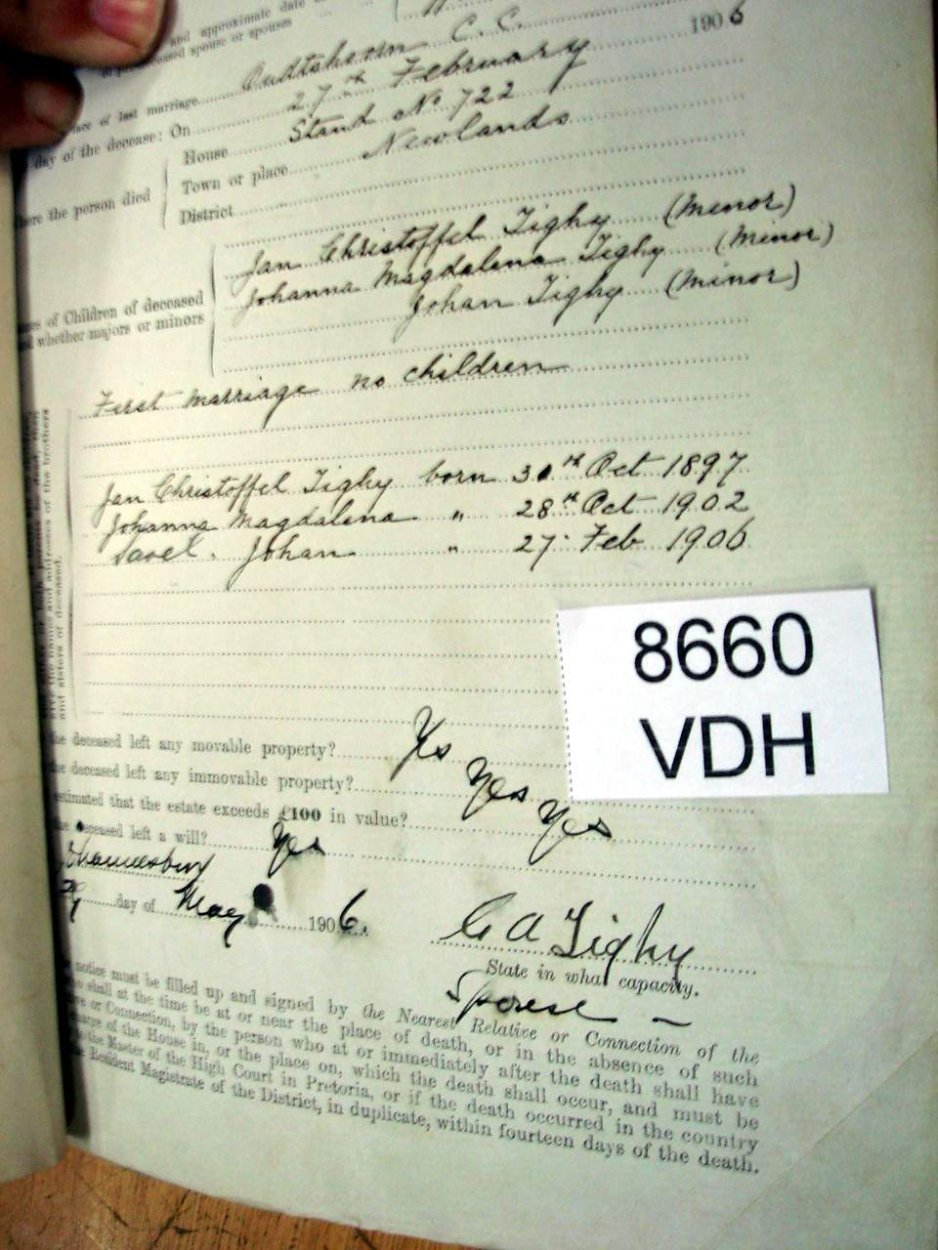 and approximate date
spouse or spouses
of last marriage Oudtshoorn C. C.
day of the decease: On 27th February 1906
House Stand No 722
where the person died Town or place Newlands
District
Jan Christoffel Tighy (Minor)
Johanna Magdalena Tighy (Minor)
Johan Tighy (Minor)
of Children of deceased
whether majors or minors
First marriage no children
Jan Christoffel Tighy born 30th Oct 1897
Johanna Magdalena " 28th Oct 1902
Johan " 27 Feb 1906
and sisters of deceased.
8660
VDH
deceased left any movable property? Yes
deceased left any immovable property? Yes
estimated that the estate exceeds £100 in value? Yes
deceased left a will? Yes
day of May 1906.
C A Tighy
State in what capacity.
Spouse
notice must be filled up and signed by the Nearest Relative or Connection of the
shall at the time be at or near the place of death, or in the absence of such
or Connection, by the person who at or immediately after the death shall have
of the House in, or the place on, which the death shall occur, and must be
the Master of the High Court in Pretoria, or if the death occurred in the country
Resident Magistrate of the District, in duplicate, within fourteen days of the death.